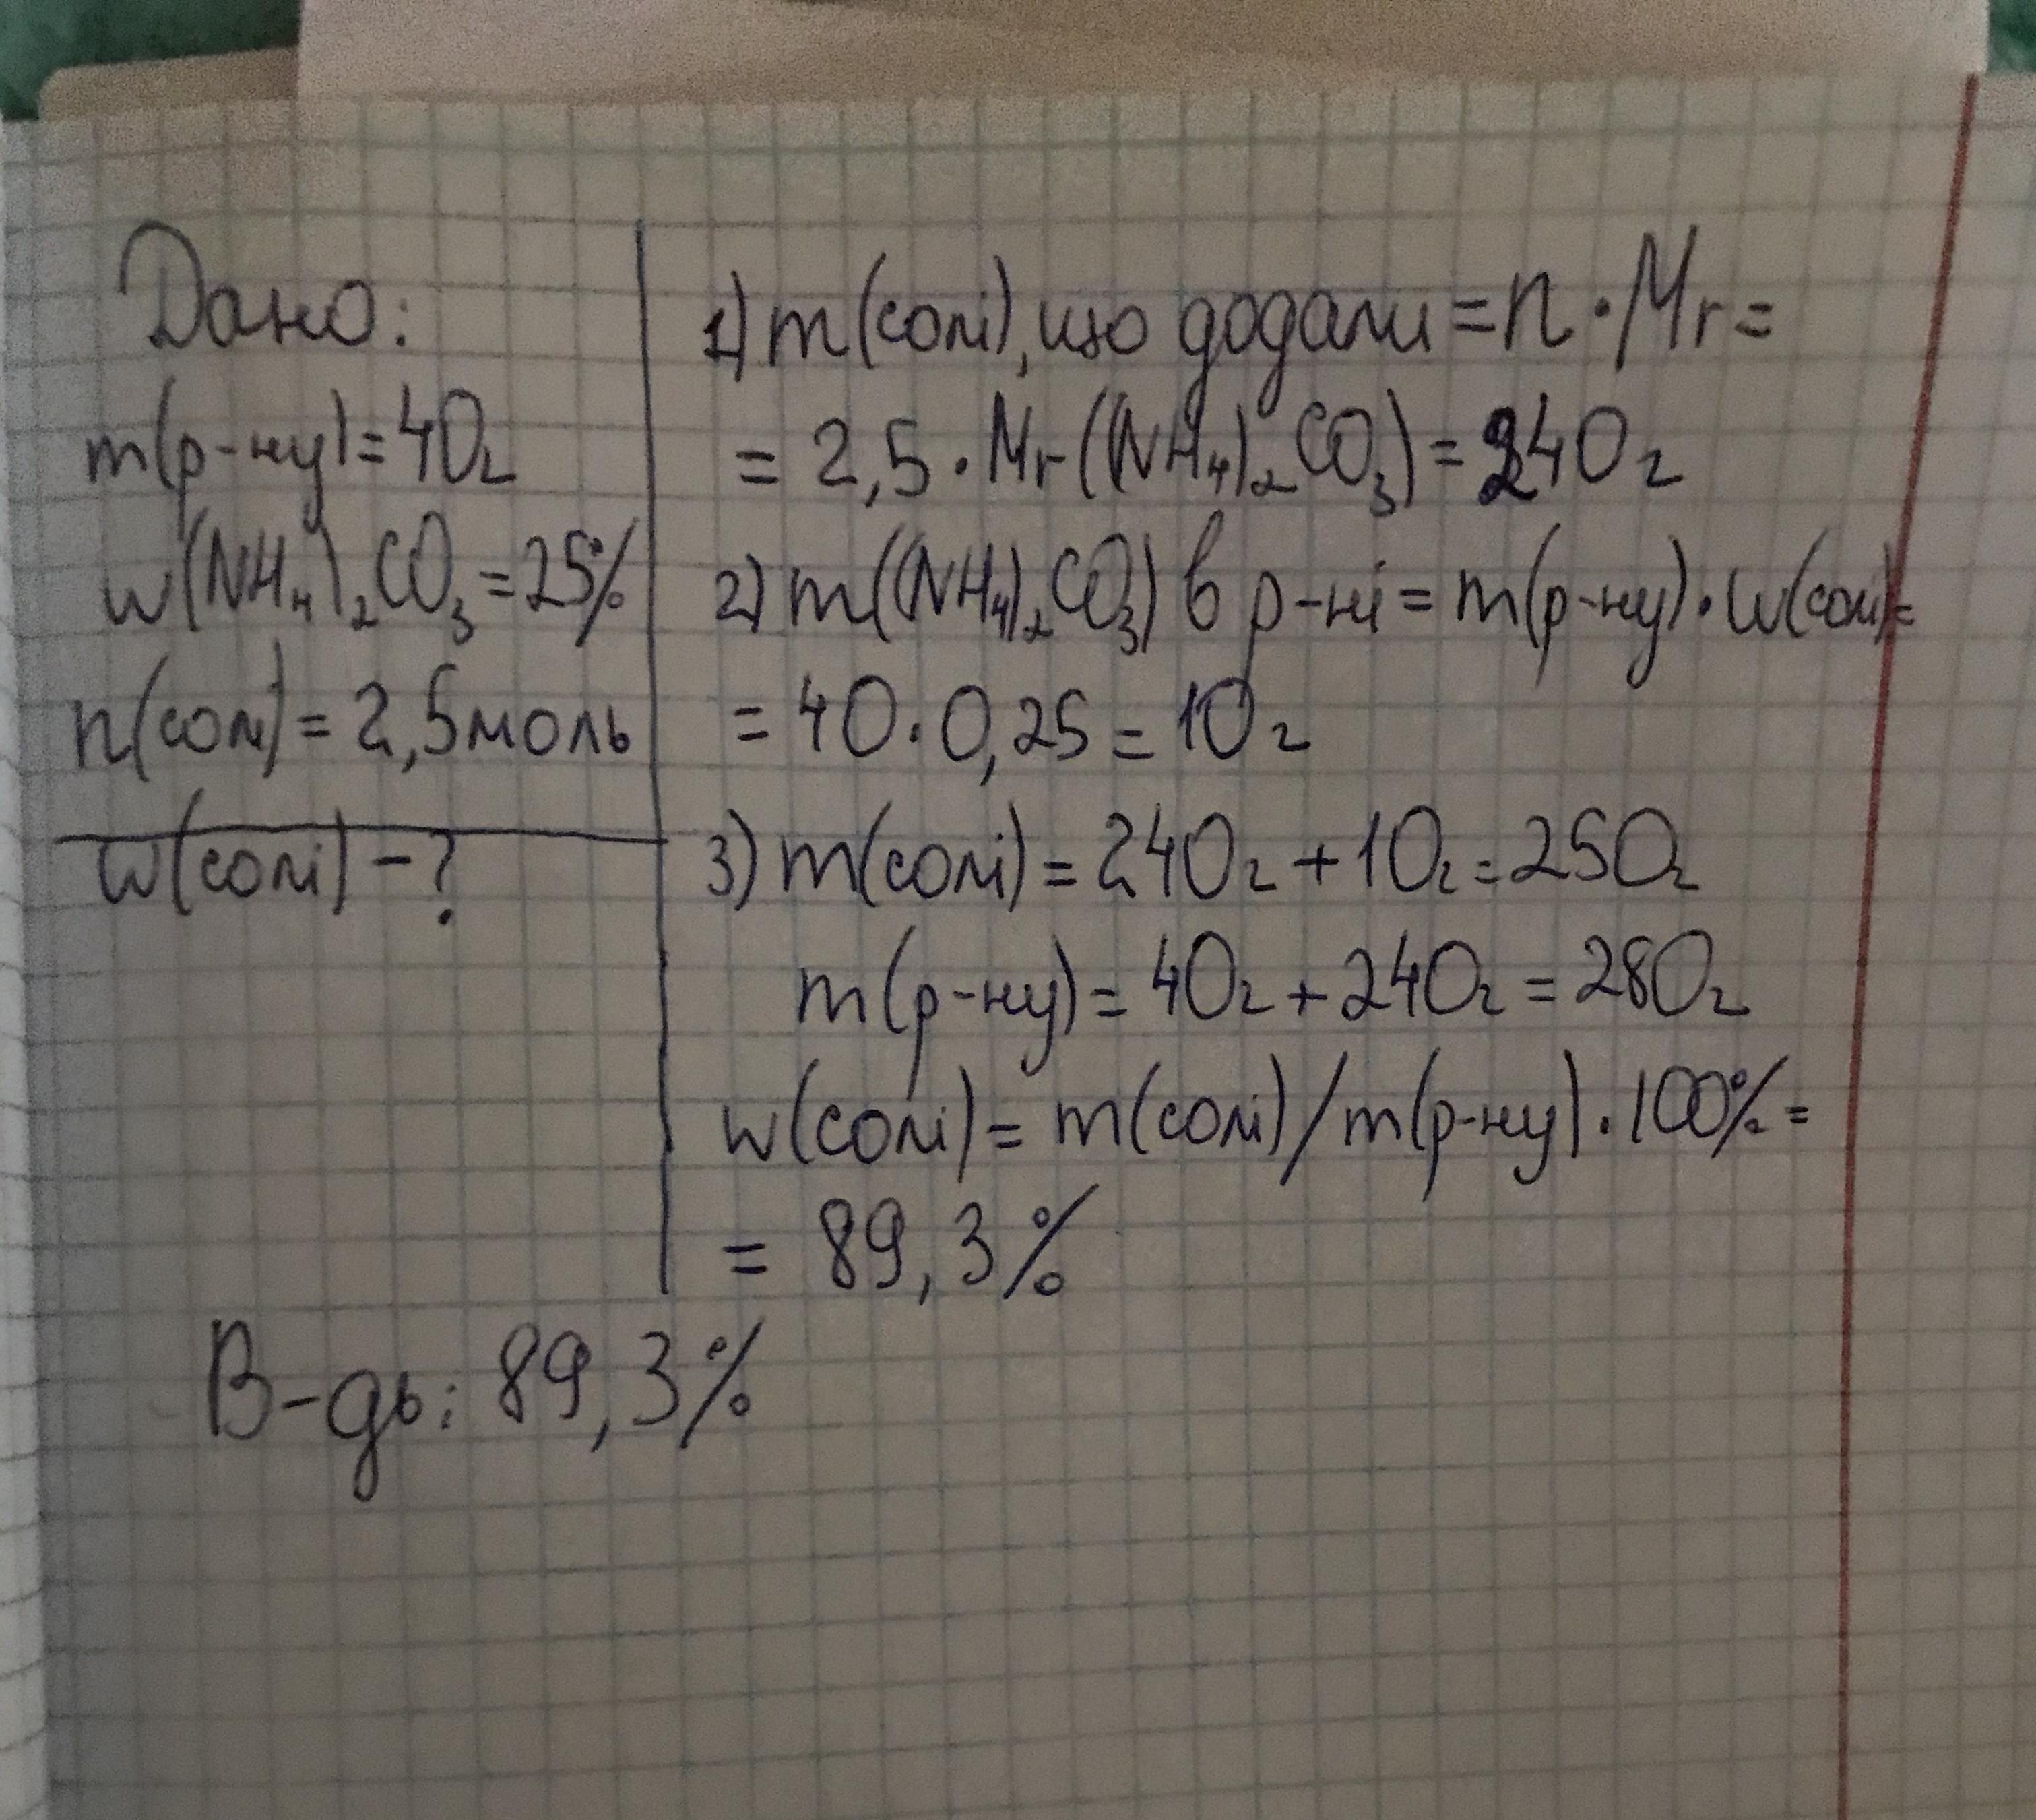 Дано:
m(р-ну)=40г
w(NH₄)₂CO₃=25%
n(солі)=2,5моль
w(солі)-?
1) m(солі), що додали=n·Mr=
=2,5·Mr((NH₄)₂CO₃)=240г
2) m((NH₄)₂CO₃) в р-ні=m(р-ну)·w(солі)=
=40·0,25=10г
3) m(солі)=240г+10г=250г
m(р-ну)=40г+240г=280г
w(солі)=m(солі)/m(р-ну)·100%=
=89,3%
В-дь: 89,3%